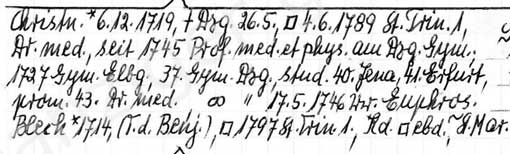 Christn. *6.12.1719, † Dzg. 26.5, □ 4.6.1789 St. Trin. 1,
Dr. med., seit 1745 Prof. med. et phys. am Dzg. Gym.,
1727 Gym. Elbg, 37. Gym. Dzg, stud. 40. Jena, 41. Erfurt,
prom. 43. Dr. med. ∞ " 17.5.1746 Euphros.
Blech *1714, (T. d. Benj.), □ 1797 St. Trin 1., Kd. □ ebd., ~ St. Mar.